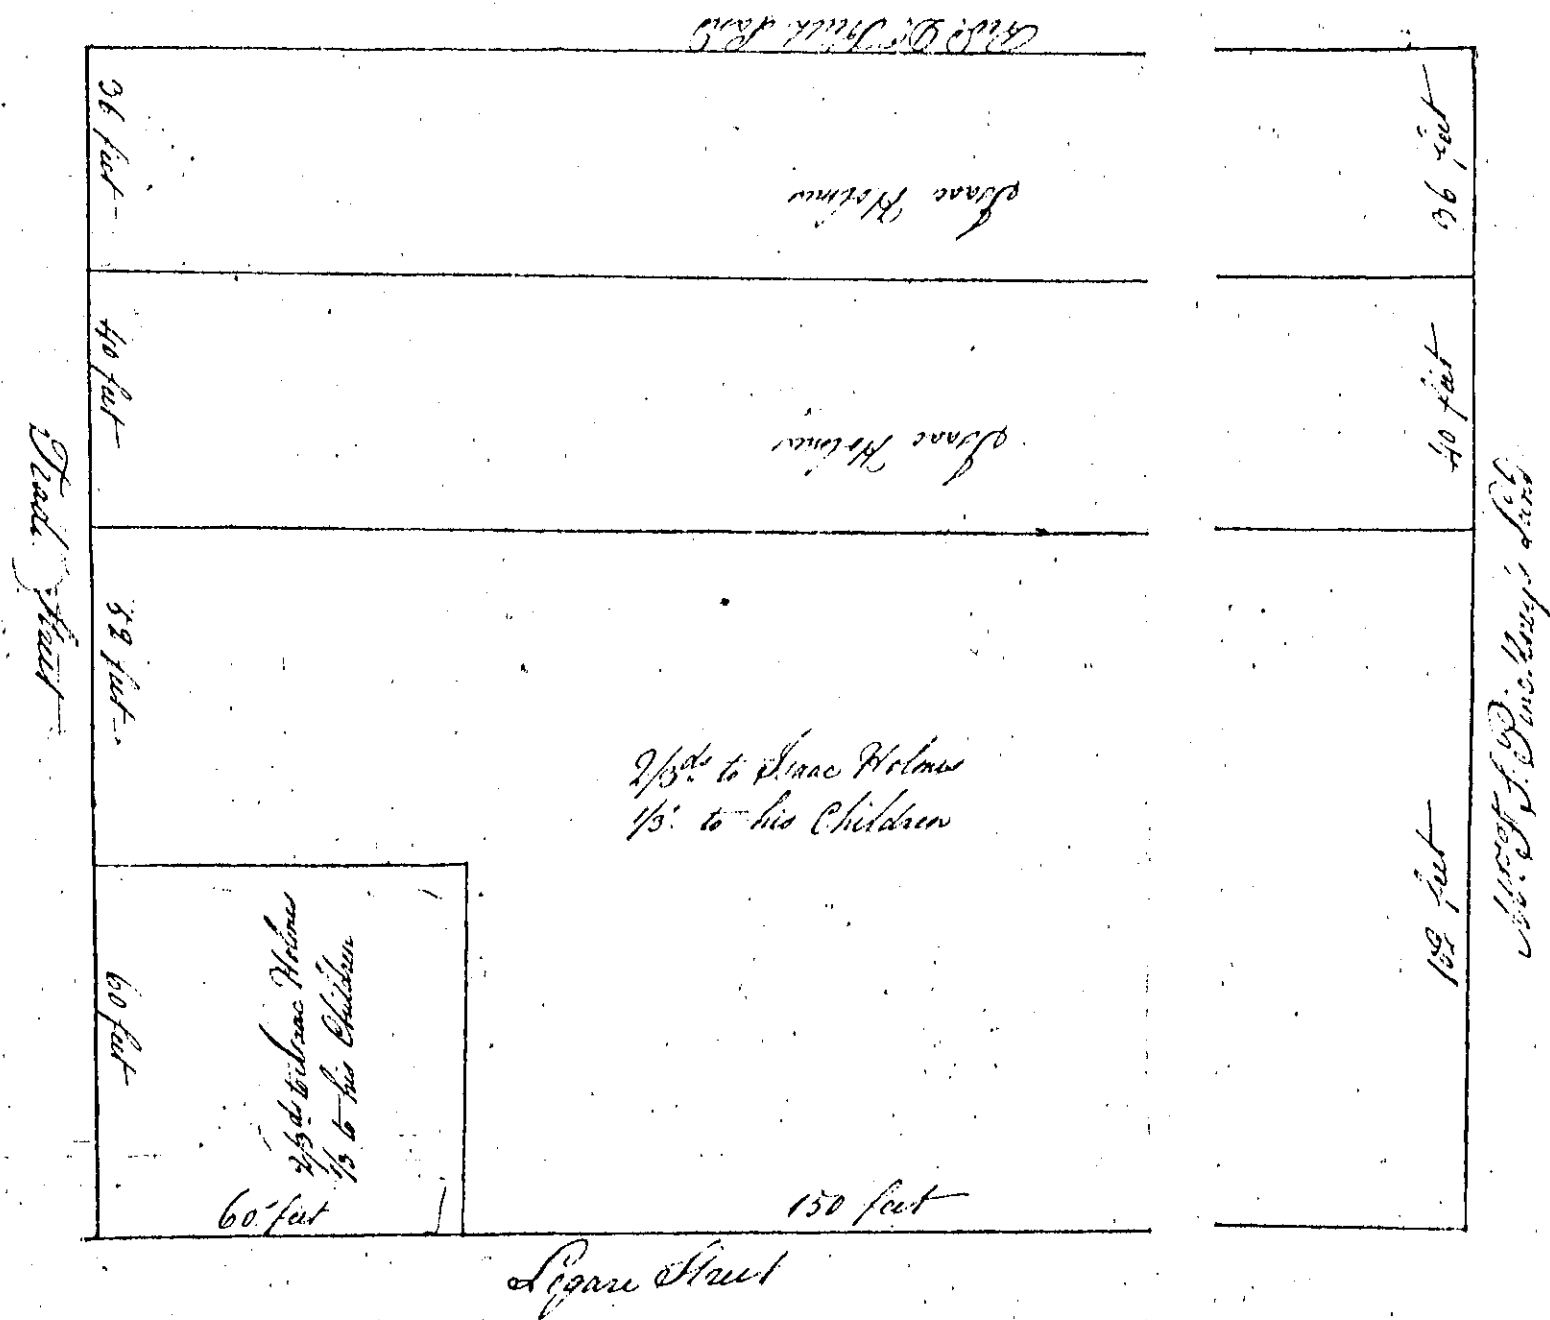 36 feet
36 feet
Isaac Holmes
40 feet
40 feet
Isaac Holmes
Tradd Street
52 feet
2/3ds to Isaac Holmes
1/3 to his Children
Pinckney's Land
60 feet
2/3ds to Isaac Holmes
1/3 to his Children
60 feet
150 feet
Legare Street